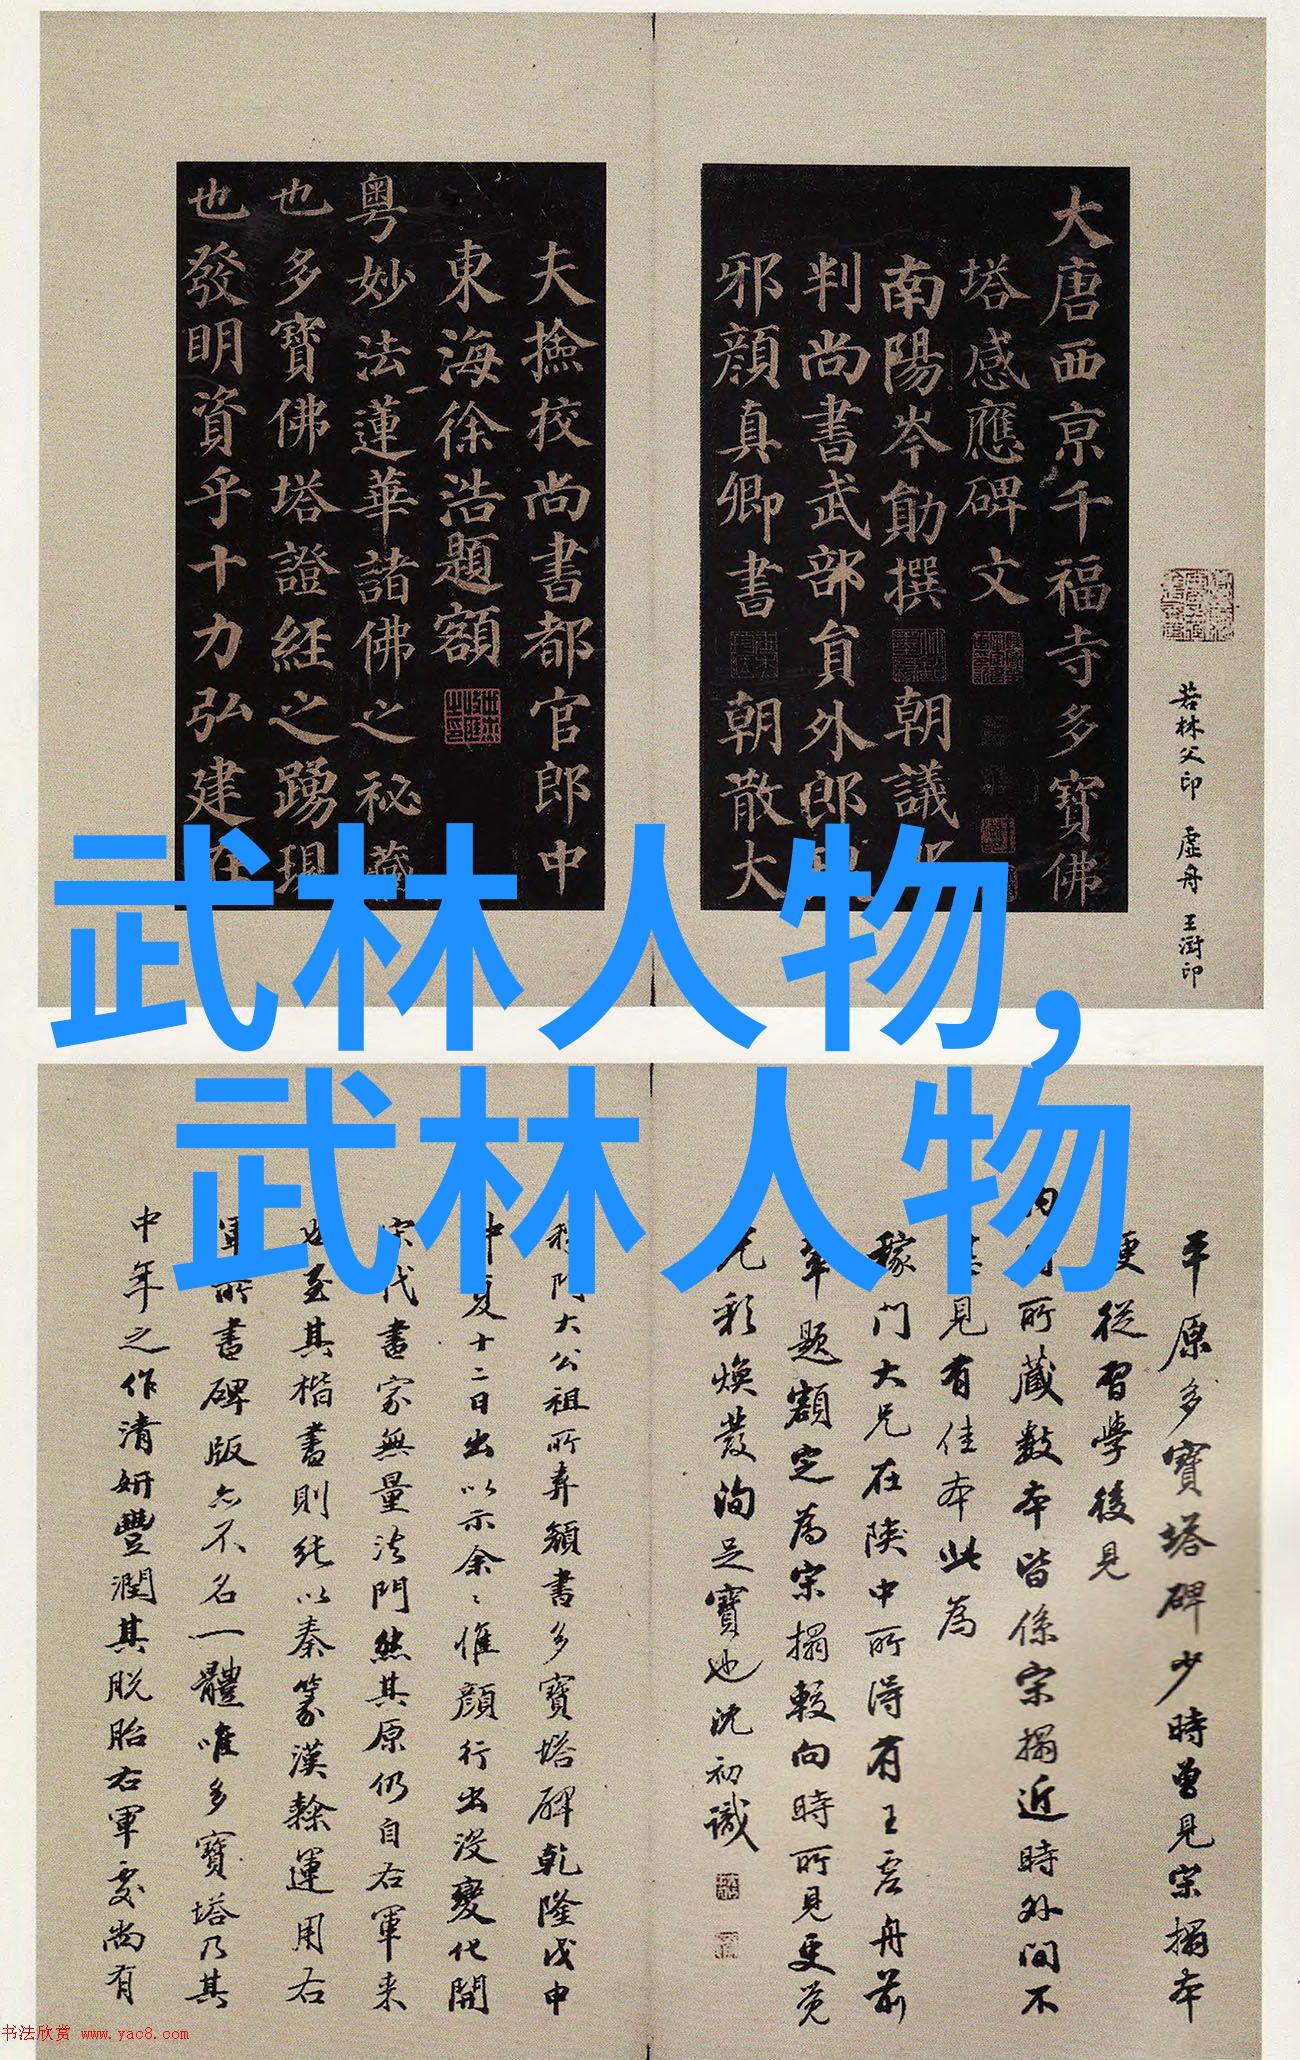 大唐西京千福寺多寶佛
塔感應碑文
南陽岑勛撰 朝議
判尚書武部員外郎
邪顏真卿書 朝散大
夫撿挍尚書都官郎中
東海徐浩題額
粵妙法蓮華諸佛之祕藏
也多寶佛塔證經之踴現
也發明資乎十力弘建
若林父印 虛舟 王澍印
武林人物,
武林人物
平原多寶塔碑少時曾見宋搨本
便從習學後見
所藏數本皆係宋搨近時外間不
見有佳本此為
稼門大兄在陝中所得有王虛舟前
輩題額定為宋搨較向時所見更覺
光彩煥發洵足寶也沈初識
大公祖所弆顏書多寶塔碑乾隆戊申
中夏十二日出以示余余惟顏行出沒變化開
宋代書家無量法門然其原仍自右軍来
至其楷書則純以秦篆漢隸運用右
軍所書碑版亦不名一體唯多寶塔乃其
中年之作清妍豐潤其脫胎右軍處尚有
书法欣赏 www.yac8.com